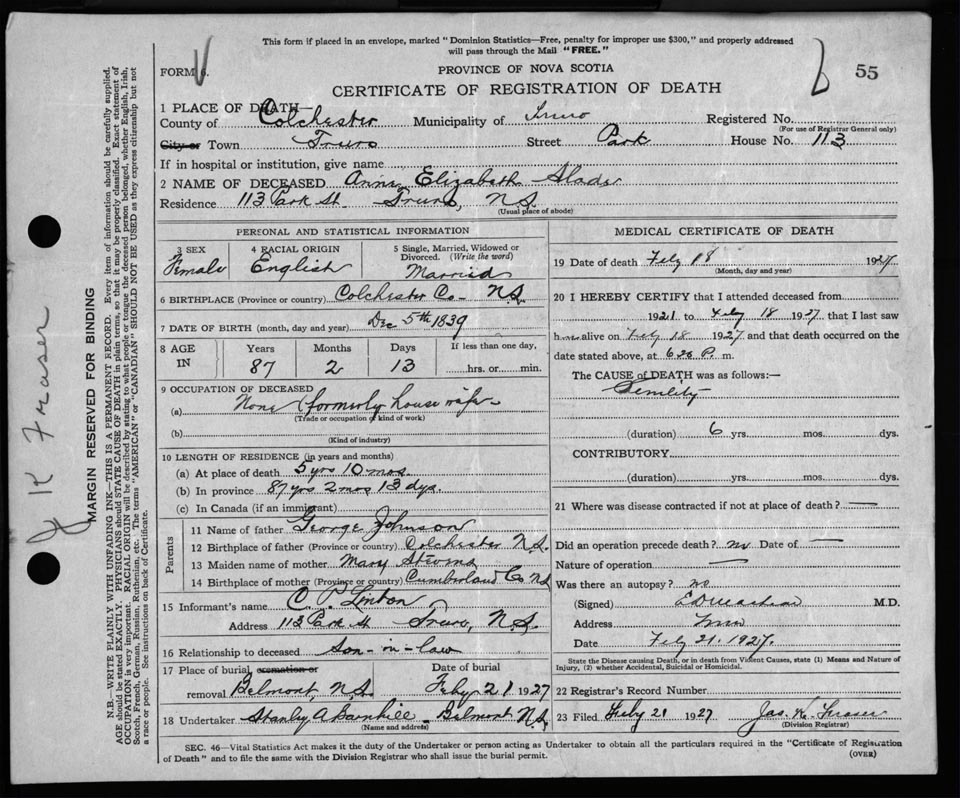 This form if placed in an envelope, marked "Dominion Statistics—Free, penalty for improper use $300," and properly addressed
will pass through the Mail "FREE."
FORM 6.
PROVINCE OF NOVA SCOTIA
55
CERTIFICATE OF REGISTRATION OF DEATH
1 PLACE OF DEATH—
County of Colchester Municipality of Truro Registered No.
(For use of Registrar General only)
City or Town Truro Street Park House No. 113
If in hospital or institution, give name
2 NAME OF DECEASED Anna Elizabeth Slade
Residence 113 Park St. Truro, N.S.
(Usual place of abode)
PERSONAL AND STATISTICAL INFORMATION
3 SEX Female
4 RACIAL ORIGIN English
5 Single, Married, Widowed or
Divorced. (Write the word)
Married
6 BIRTHPLACE (Province or country) Colchester Co. N.S.
7 DATE OF BIRTH (month, day and year) Dec 5th 1839
8 AGE IN
Years Months Days If less than one day,
87 2 13 hrs. or min.
9 OCCUPATION OF DECEASED
(a) None (formerly house wife
(Trade or occupation of kind of work)
(b)
(Kind of industry)
10 LENGTH OF RESIDENCE (in years and months)
(a) At place of death 5 yrs 10 mos.
(b) In province 87 yrs 2 mos 13 dys.
(c) In Canada (if an immigrant)
Parents
11 Name of father George Johnson
12 Birthplace of father (Province or country) Colchester N.S.
13 Maiden name of mother Mary Stevens
14 Birthplace of mother (Province or country) Cumberland Co N.S.
15 Informant's name C. P. Linton
Address 113 Park St Truro, N.S.
16 Relationship to deceased Son-in-law
17 Place of burial, cremation or
removal Belmont, N.S.
Date of burial
Feby 21 1927
18 Undertaker Stanley A Barnhill Belmont N.S.
(Name and address)
MEDICAL CERTIFICATE OF DEATH
19 Date of death Feby 18 1927
(Month, day and year)
20 I HEREBY CERTIFY that I attended deceased from
1921 to Feby 18 1927 that I last saw
h alive on Feby 18 1927 and that death occurred on the
date stated above, at P. m.
The CAUSE of DEATH was as follows:—
Senility
(duration) 6 yrs. mos. dys.
CONTRIBUTORY
(duration) yrs. mos. dys.
21 Where was disease contracted if not at place of death? —
Did an operation precede death? no Date of —
Nature of operation —
Was there an autopsy? no
(Signed) M.D.
Address Truro
Date Feby 21. 1927.
State the Disease causing Death, or in death from Violent Causes, state (1) Means and Nature of
Injury, (2) whether Accidental, Suicidal or Homicidal.
22 Registrar's Record Number
23 Filed Feby 21 1927 Jas. K. Fraser
(Division Registrar)
SEC. 46—Vital Statistics Act makes it the duty of the Undertaker or person acting as Undertaker to obtain all the particulars required in the "Certificate of Registration
of Death" and to file the same with the Division Registrar who shall issue the burial permit.
(OVER)
J K Fraser
MARGIN RESERVED FOR BINDING
N.B.—WRITE PLAINLY WITH UNFADING INK—THIS IS A PERMANENT RECORD. Every item of information should be carefully supplied.
AGE should be stated EXACTLY. PHYSICIANS should STATE CAUSE OF DEATH in plain terms, so that it may be properly classified. Exact statement of
OCCUPATION is very important. RACIAL ORIGIN will be described by stating to what people or tongue the deceased person belonged, whether English, Irish,
Scotch, French, German, Russian, Ruthenian, etc. The terms "AMERICAN" or "CANADIAN" SHOULD NOT BE USED as they express citizenship but not
a race or people. See instructions on back of Certificate.